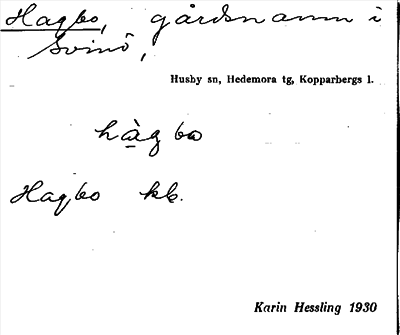 Hagbo, gårdsnamn i
Svinö,
Husby sn, Hedemora tg, Kopparbergs l.
hàg bo
Hagbo kk.
Karin Hessling 1930